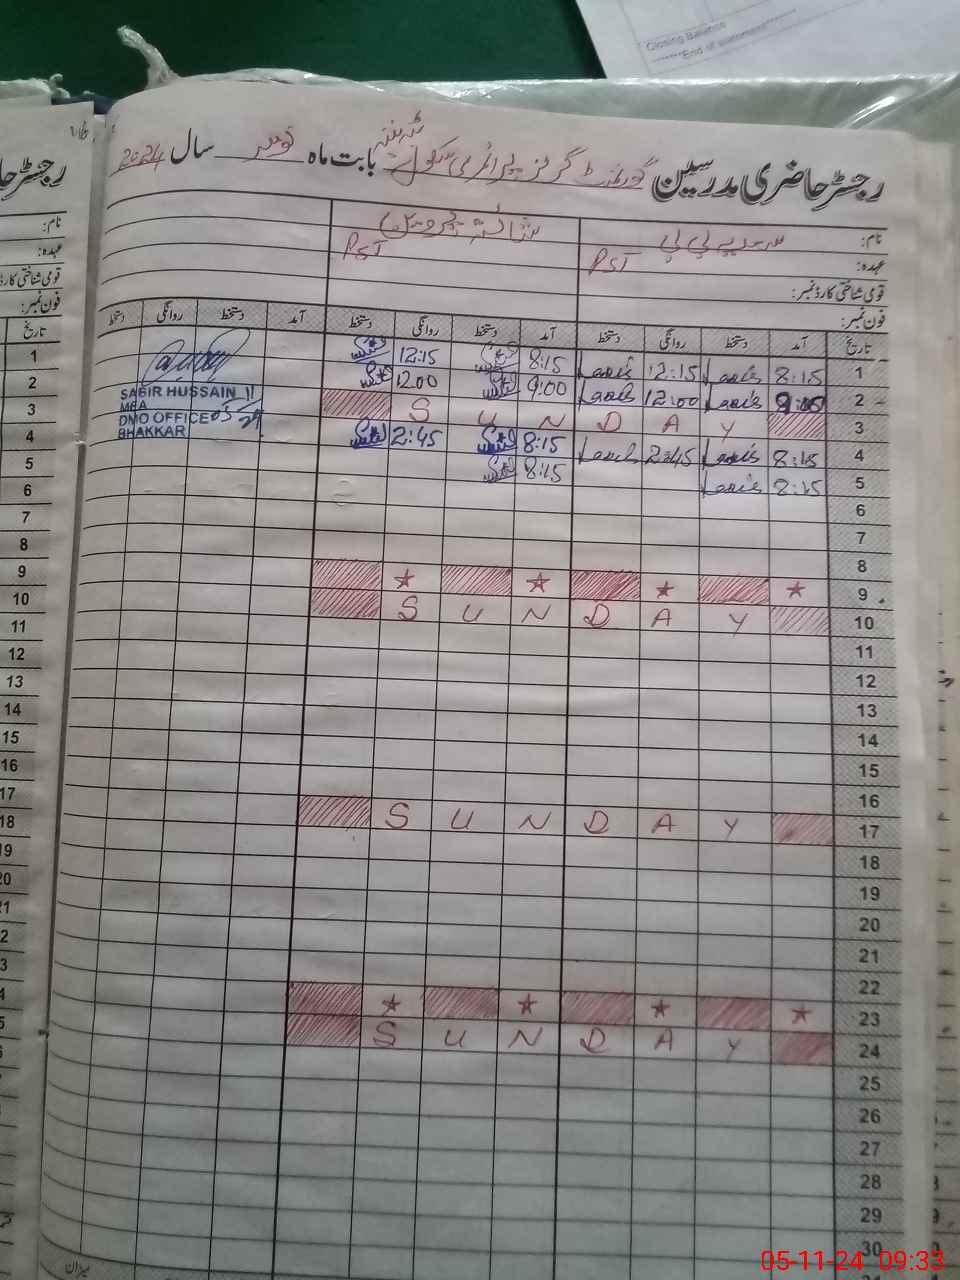 Closing Balance
********End of statement********
رجسٹر حاضری مدرسین گورنمنٹ گرلز پرائمری سکول بابت ماہ نومبر سال 2024
نام:
عہدہ: PST PST
قومی شناختی کارڈ نمبر:
فون نمبر:
تاریخ آمد دستخط روانگی دستخط آمد دستخط روانگی دستخط آمد دستخط روانگی دستخط
1 8:15 12:15 8:15 12:15
2 9:00 12:00 9:00 12:00
3 S U N D A Y
4 8:15 2:45 8:15 2:45
5 8:15 8:15
SABIR HUSSAIN
MEA
DMO OFFICE
BHAKKAR
6
7
8
9 ★ ★ ★ ★
10 S U N D A Y
11
12
13
14
15
16
17 S U N D A Y
18
19
20
21
22
23 ★ ★ ★ ★
24 S U N D A Y
25
26
27
28
29
30
میزان
رجسٹر حا
نام:
عہدہ:
قومی شناختی کارڈ
فون نمبر:
تاریخ
1
2
3
4
5
6
7
8
9
10
11
12
13
14
15
16
17
18
19
20
05-11-24 09:33